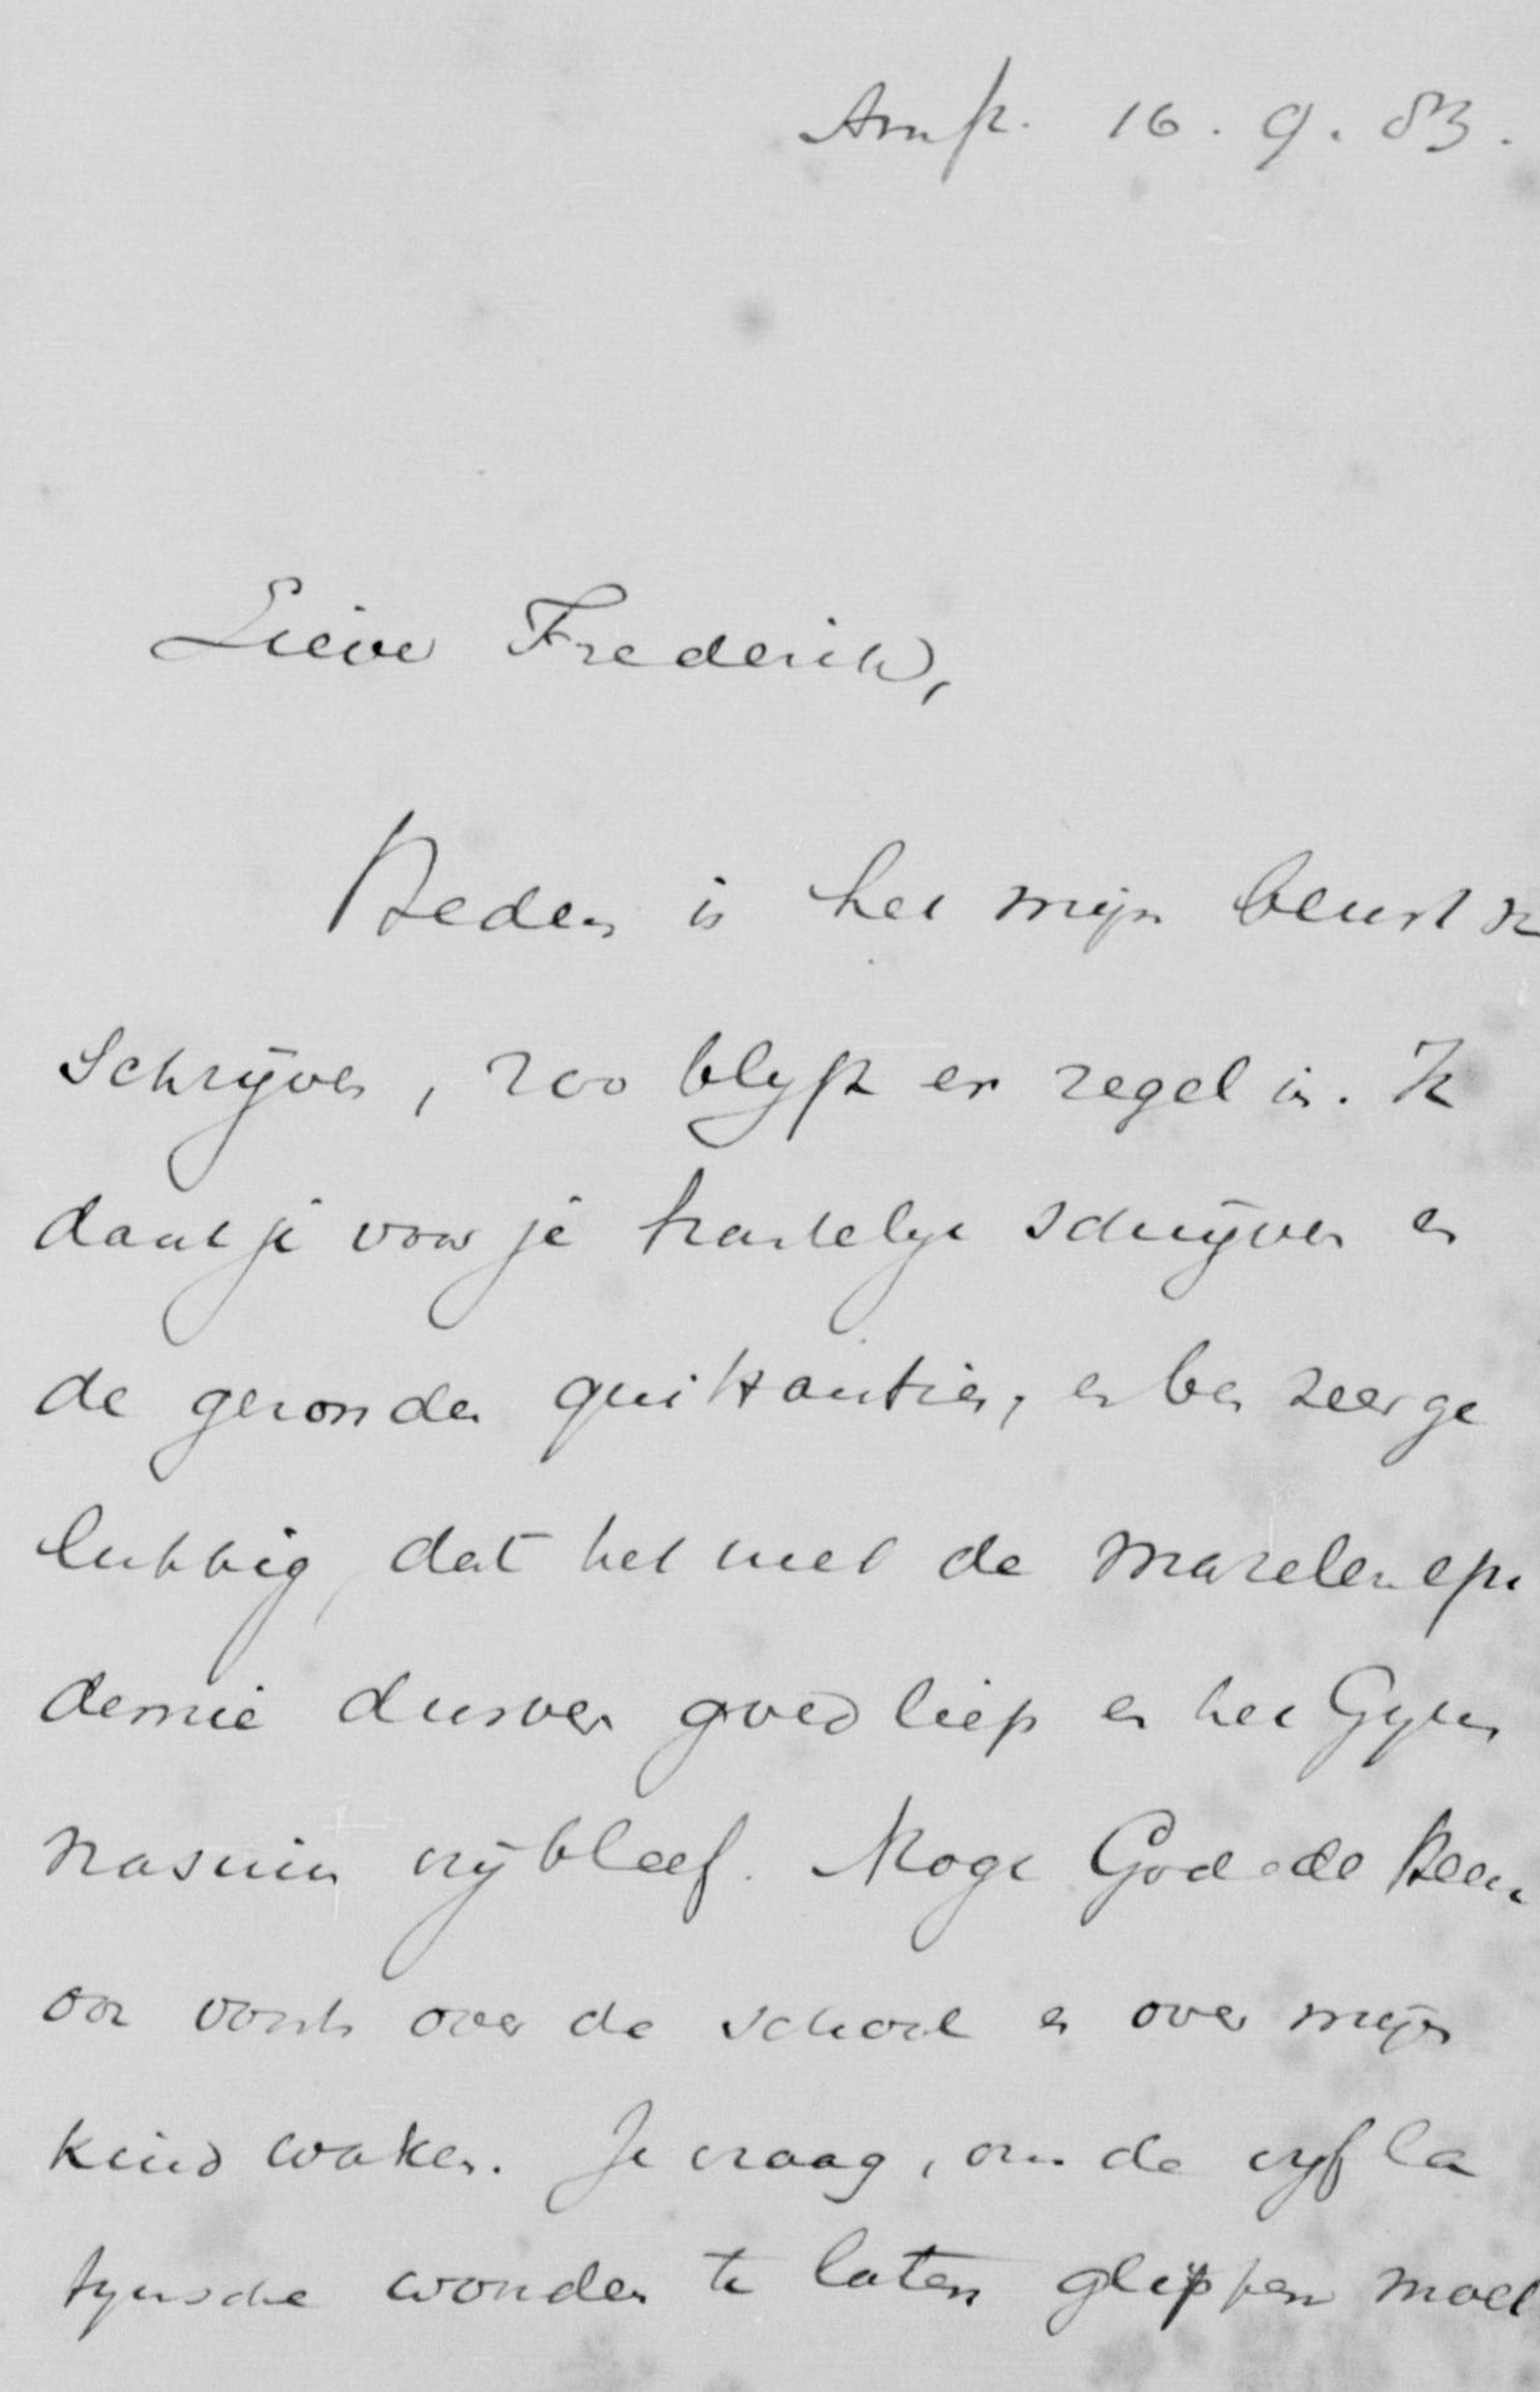 Amst. 16. 9. 83.
Lieve Frederik,
Heden is het mijn beurt n
schrijven, zoo blyft er regel in. Ik
dank je voor je hartelyk schrijven en
de gezonden quitantien, en ben zeer ge
lukkig, dat het met de mazelen epi
demie dusver goed liep en het Gym
nasium vrij bleef. Moge God de Heer
ook voorts over de school en over mijn
kind waken. Je vraag, om de vyf la
tynsche wonden te laten glippen moet